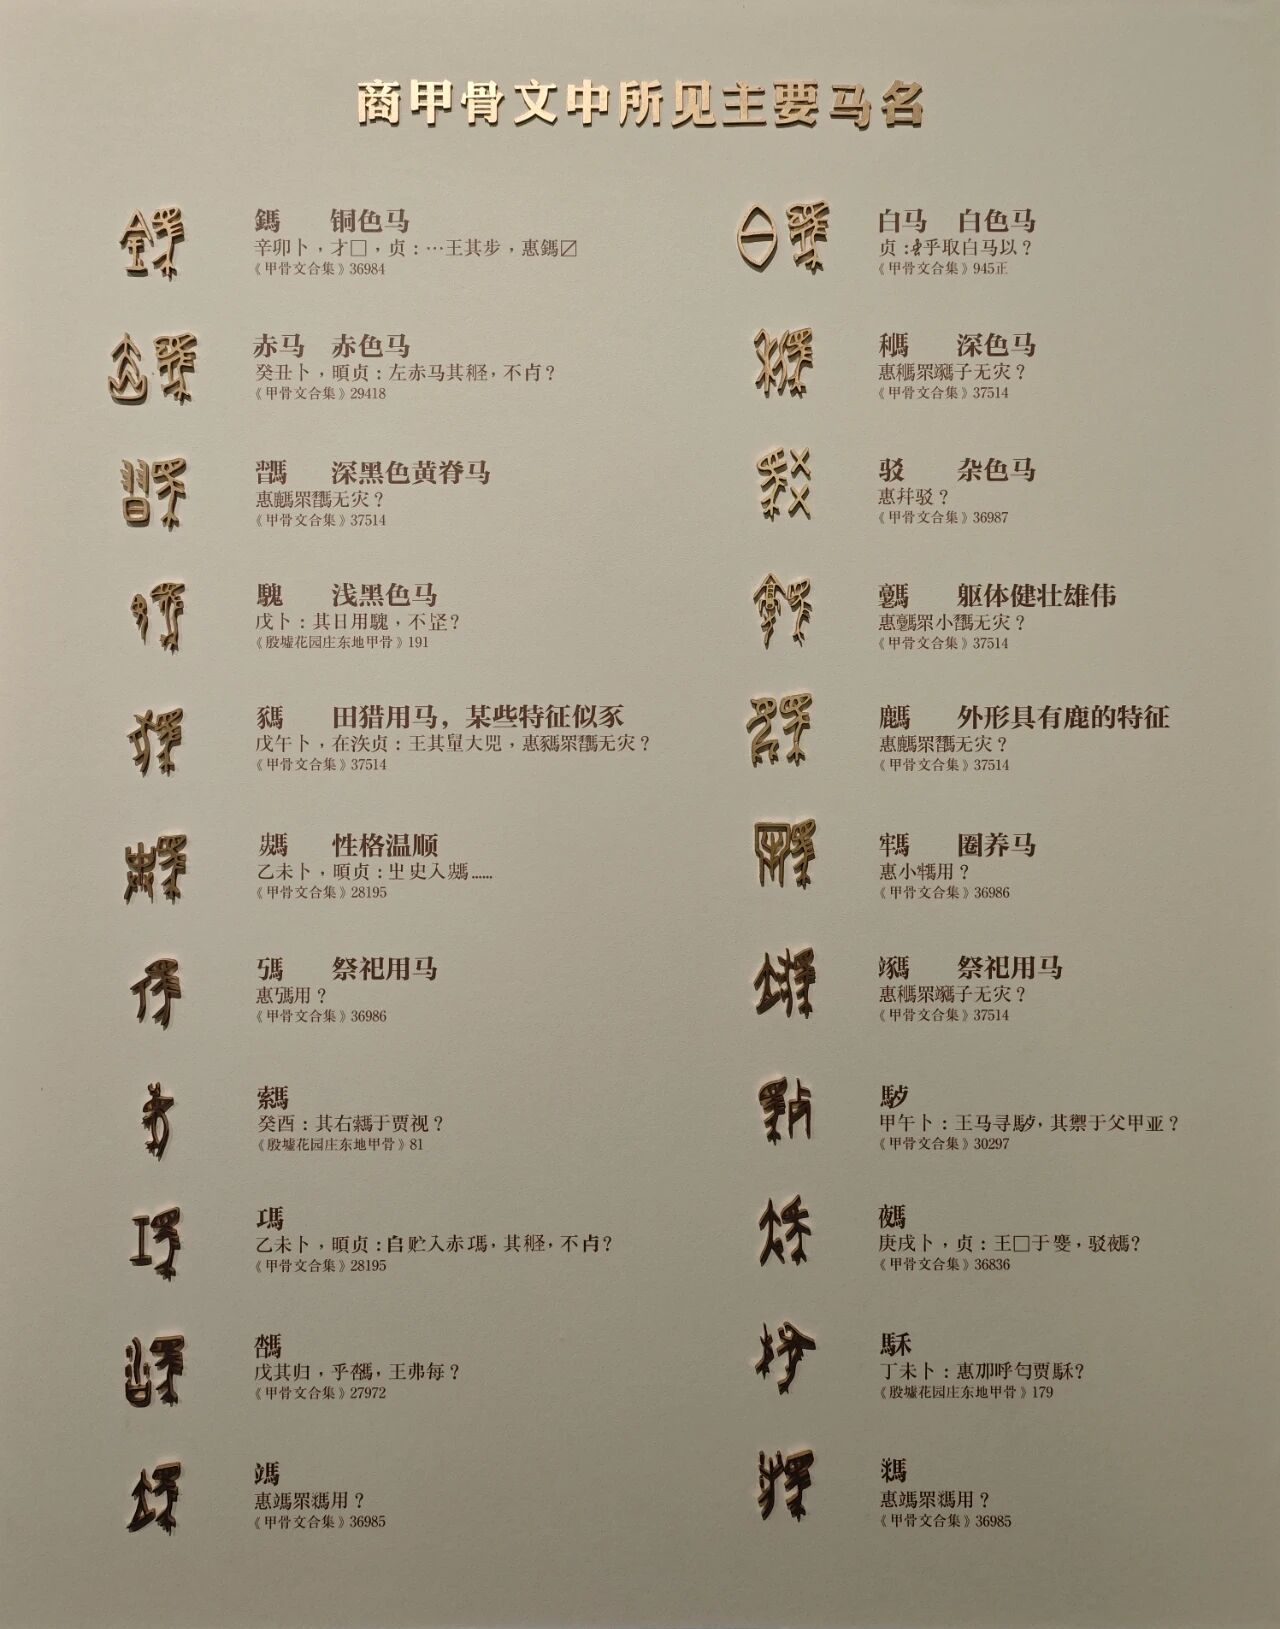 商甲骨文中所见主要马名
鎷 铜色马
辛卯卜，才□，贞：…王其步，惠鎷〼
《甲骨文合集》36984
赤马 赤色马
癸丑卜，㬎贞：左赤马其，不？
《甲骨文合集》29418
深黑色黄脊马
惠眔无灾？
《甲骨文合集》37514
騩 浅黑色马
戊卜：其日用騩，不？
《殷墟花园庄东地甲骨》191
田猎用马，某些特征似豕
戊午卜，在泆贞：王其大兕，惠眔无灾？
《甲骨文合集》37514
性格温顺
乙未卜，贞：史入……
《甲骨文合集》28195
祭祀用马
惠用？
《甲骨文合集》36986
癸酉：其右于贾视？
《殷墟花园庄东地甲骨》81
乙未卜，贞：贮入赤，其，不？
《甲骨文合集》28195
戊其归，乎，王弗每？
《甲骨文合集》27972
惠眔用？
《甲骨文合集》36985
白马 白色马
贞：乎取白马以？
《甲骨文合集》945正
深色马
惠眔子无灾？
《甲骨文合集》37514
驳 杂色马
惠并驳？
《甲骨文合集》36987
躯体健壮雄伟
惠眔小无灾？
《甲骨文合集》37514
外形具有鹿的特征
惠眔无灾？
《甲骨文合集》37514
圈养马
惠小用？
《甲骨文合集》36986
祭祀用马
惠眔子无灾？
《甲骨文合集》37514
甲午卜：王马寻，其禦于父甲亚？
《甲骨文合集》30297
庚戌卜，贞：王□于，驳？
《甲骨文合集》36836
丁未卜：惠呼匄贾？
《殷墟花园庄东地甲骨》179
惠眔用？
《甲骨文合集》36985